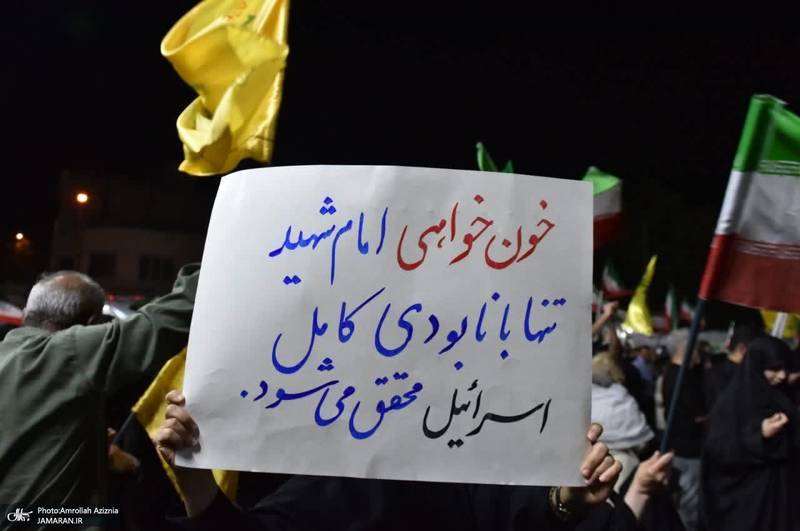 خون‌خواهی امام شهید
تنها با نابودی کامل
اسرائیل محقق می‌شود.
Photo:Amrollah Aziznia
JAMARAN.IR